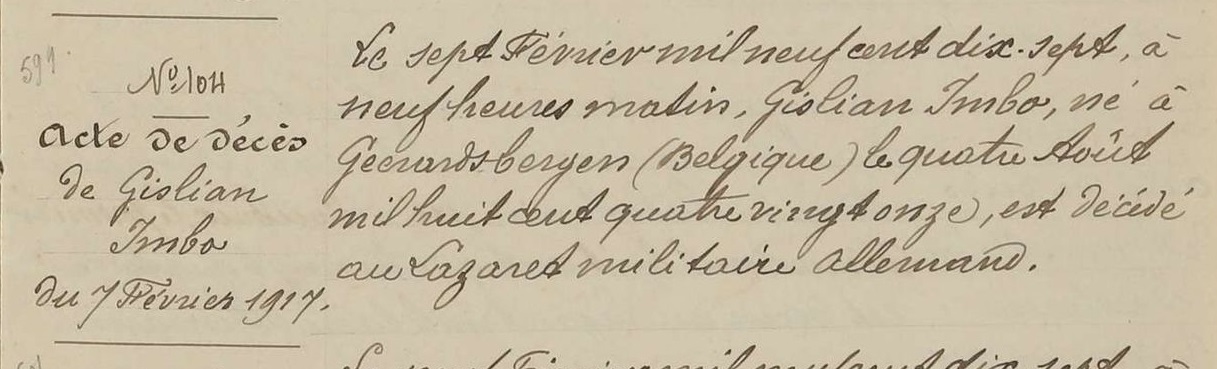 591
Nº 104
Acte de décès
de Gislian
Imbo
du 7 Février 1917.
Le sept Février mil neuf cent dix-sept, à
neuf heures matin, Gislian Imbo, né à
Geerardsbergen (Belgique) le quatre Août
mil huit cent quatre vingt onze, est décédé
au Lazaret militaire allemand.